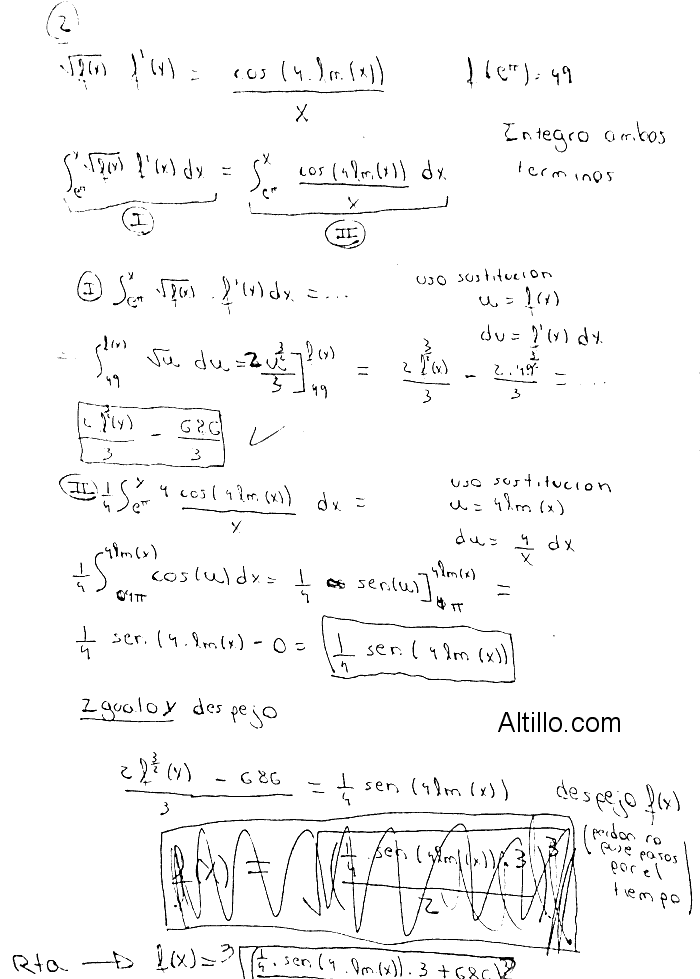 2
√f(x) f'(x) = cos(4.ln(x)) / x    f(e^π) = 49
Integro ambos
terminos
∫_{e^π}^{x} √f(x) f'(x) dx = ∫_{e^π}^{x} cos(4ln(x)) / x dx
I    II
I ∫_{e^π}^{x} √f(x) . f'(x) dx = ...    uso sustitucion
u = f(x)
du = f'(x) dx
= ∫_{49}^{f(x)} √u du = 2u^{3/2} / 3 ]_{49}^{f(x)} = 2f^{3/2}(x) / 3 - 2.49^{3/2} / 3 = ...
2f^{3/2}(x) / 3 - 686 / 3 ✓
II) 1/4 ∫_{e^π}^{x} 4 cos(4ln(x)) / x dx =    uso sustitucion
u = 4ln(x)
du = 4/x dx
1/4 ∫_{4π}^{4ln(x)} cos(u) dx = 1/4 sen(u) ]_{4π}^{4ln(x)} =
1/4 sen(4.ln(x) - 0 = 1/4 sen(4ln(x))
Igualo y despejo
Altillo.com
2f^{3/2}(x) - 686 / 3 = 1/4 sen(4ln(x))    despejo f(x)
(perdon no
puse pasos
por el
tiempo)
f(x) = √(1/4 sen(4ln(x)).3 / 2)^3
Rta → f(x) = ∛((1/4 . sen(4.ln(x)).3 + 686)^2